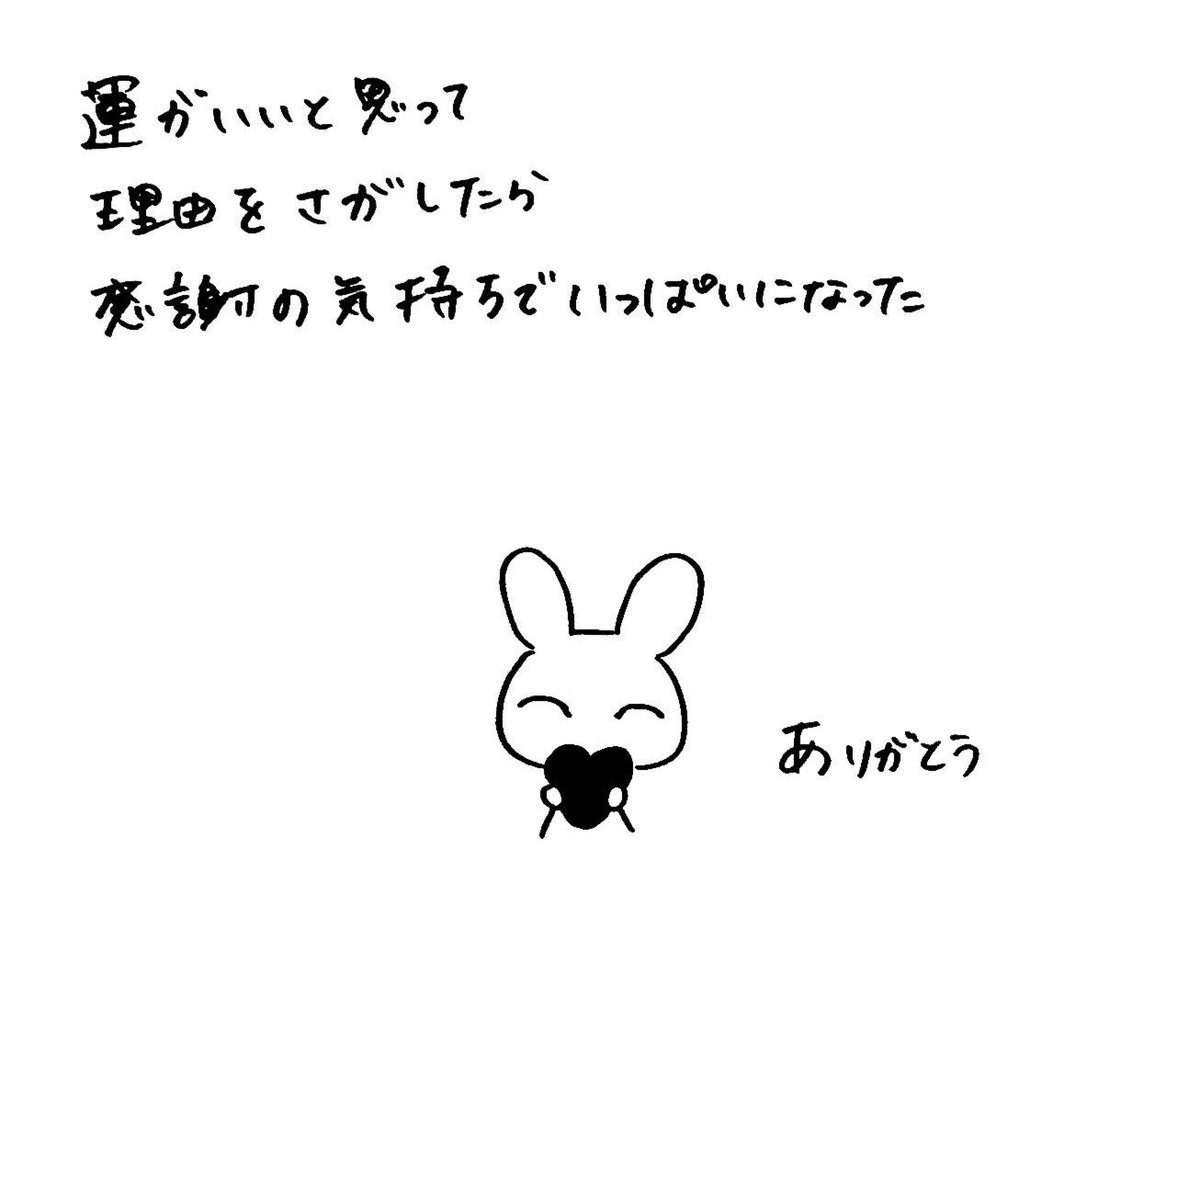 運がいいと思って
理由をさがしたら
感謝の気持ちでいっぱいになった
ありがとう